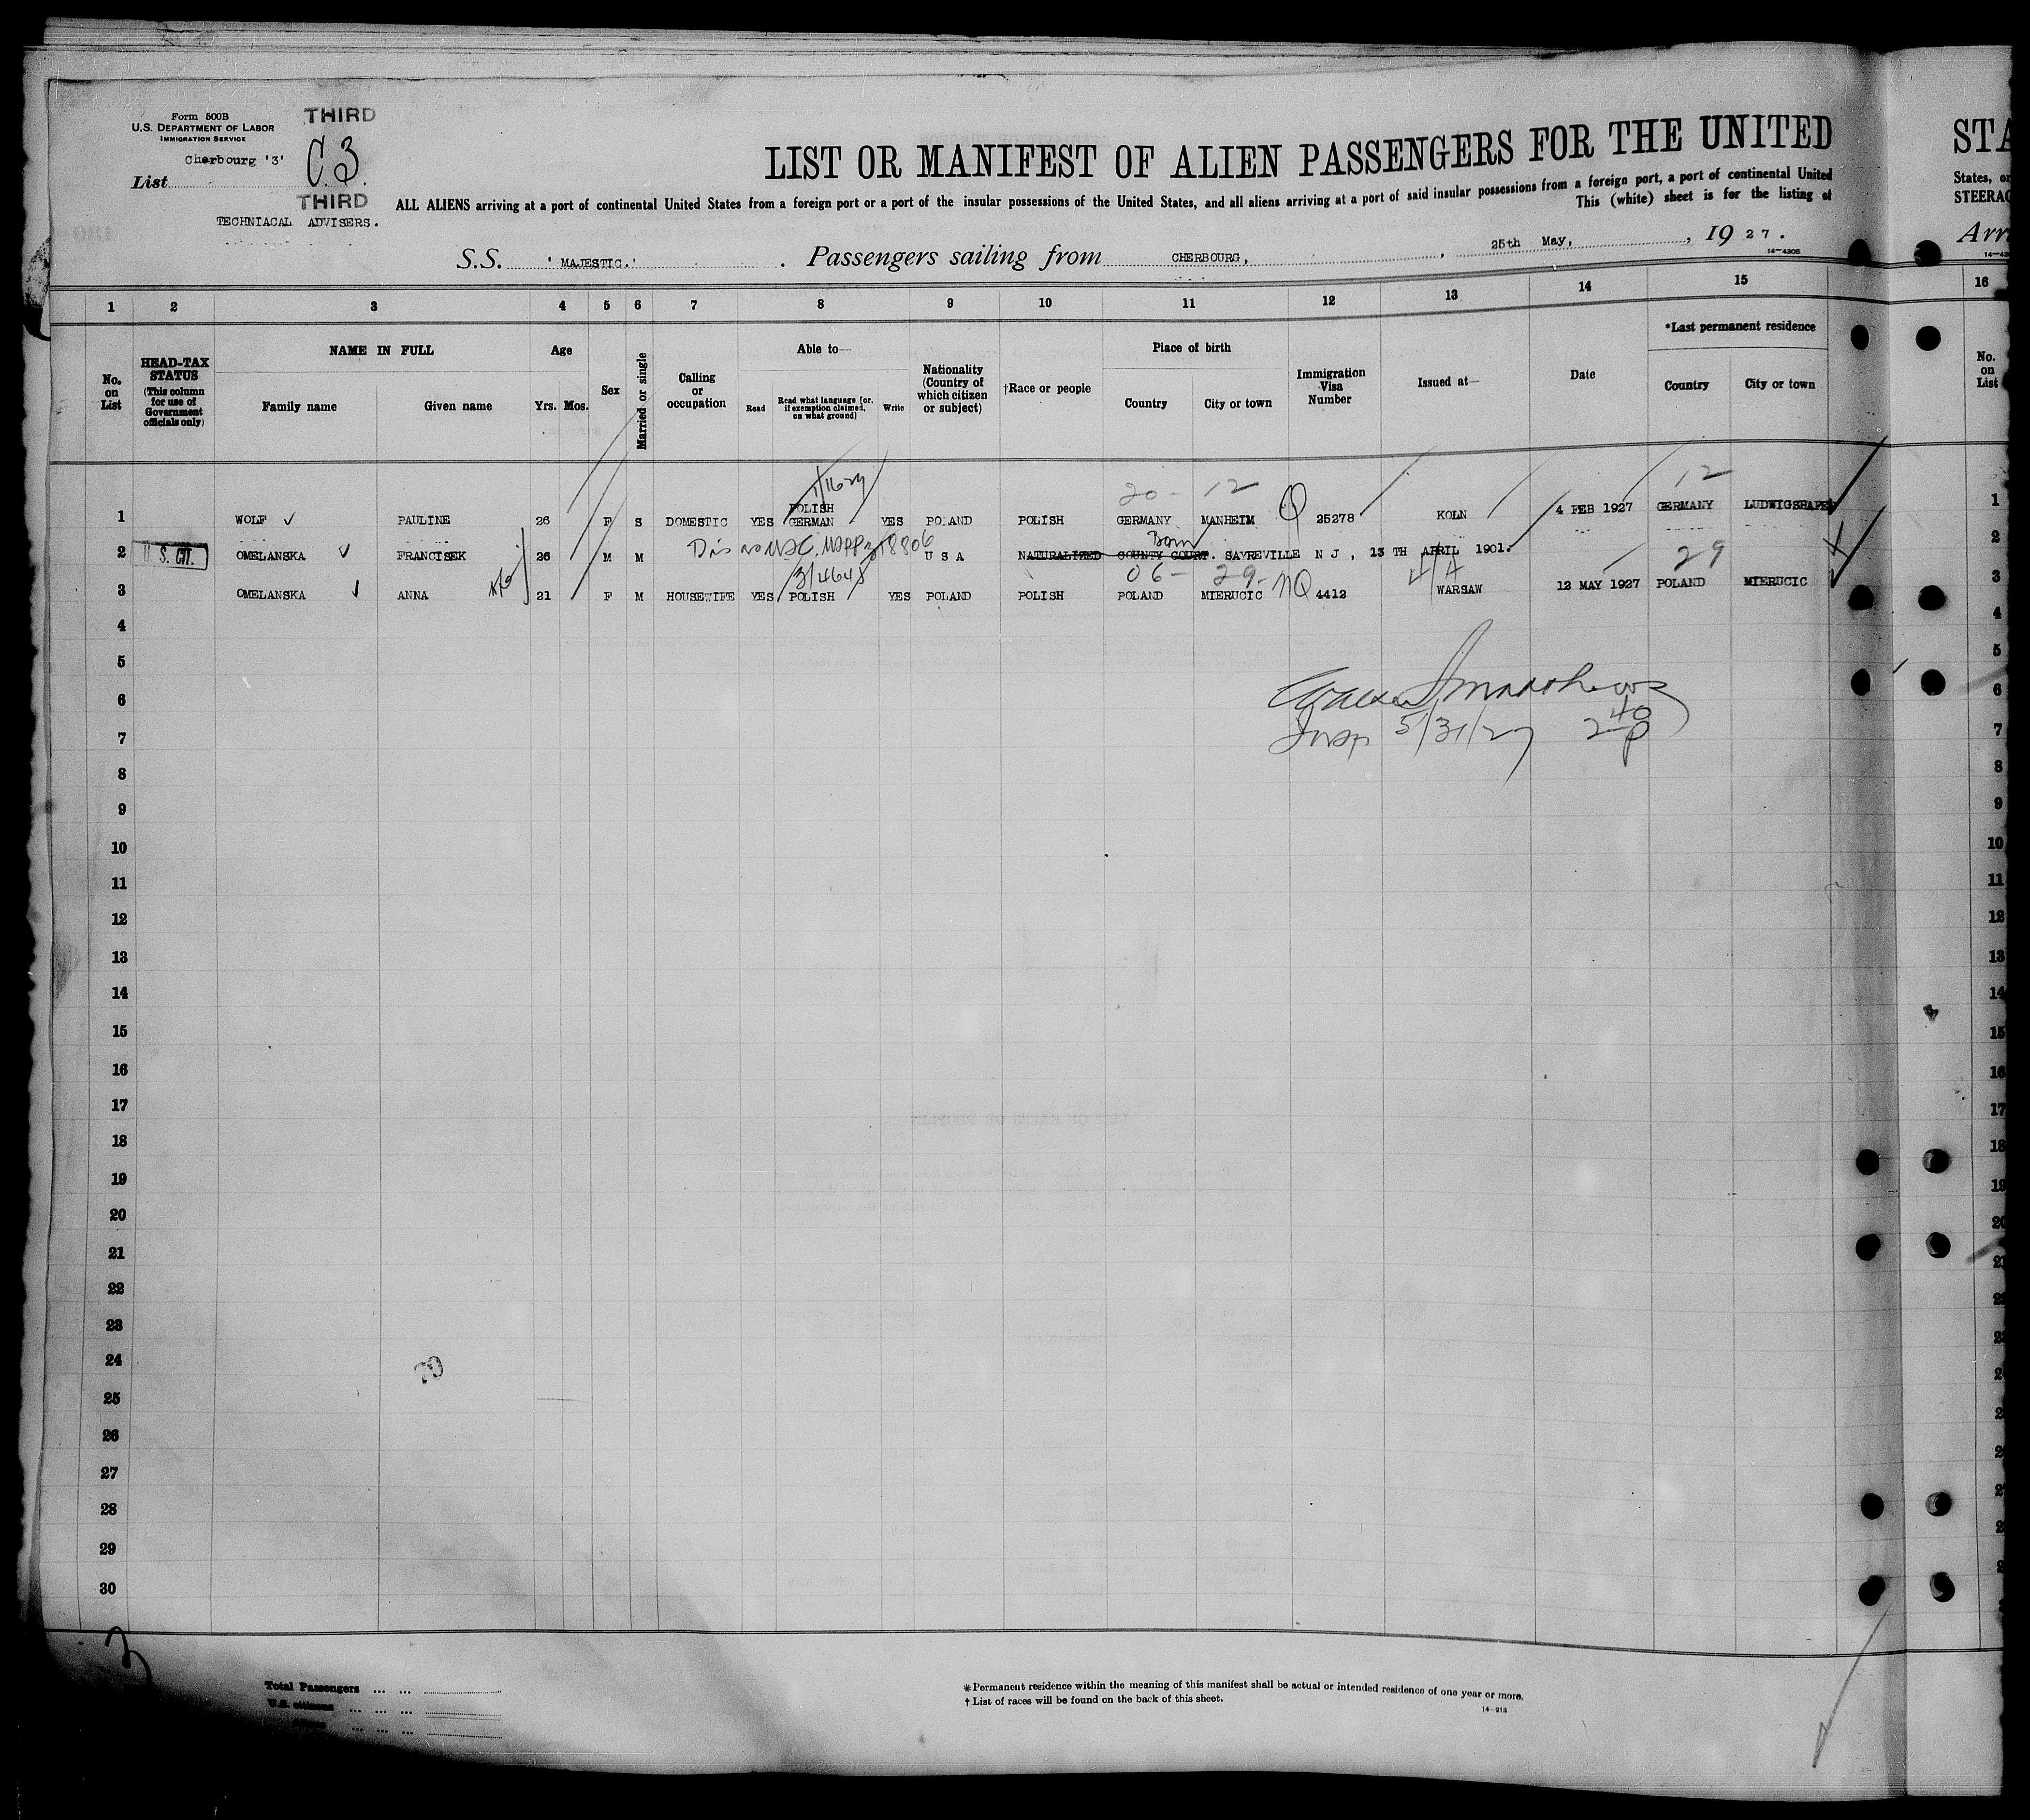 Form 500B
U.S. DEPARTMENT OF LABOR
IMMIGRATION SERVICE
THIRD
Cherbourg '3'
List
C.3.
THIRD
TECHNIACAL ADVISERS.
LIST OR MANIFEST OF ALIEN PASSENGERS FOR THE UNITED
ALL ALIENS arriving at a port of continental United States from a foreign port or a port of the insular possessions of the United States, and all aliens arriving at a port of said insular possessions from a foreign port, a port of continental United
This (white) sheet is for the listing of
S.S. 'MAJESTIC.' Passengers sailing from CHERBOURG, 25th May, , 19 27.
14-430B
STA
States, or
STEERAG
Arri
1 2 3 4 5 6 7 8 9 10 11 12 13 14 15 16
No. on List
HEAD-TAX STATUS (This column for use of Government officials only)
NAME IN FULL
Family name Given name
Age
Yrs. Mos.
Sex
Married or single
Calling or occupation
Able to—
Read Read what language [or, if exemption claimed, on what ground] Write
Nationality (Country of which citizen or subject)
†Race or people
Place of birth
Country City or town
Immigration Visa Number
Issued at—
Date
*Last permanent residence
Country City or town
No. on List
1/1629
20- 12 12
1 WOLF PAULINE 26 F S DOMESTIC YES POLISH GERMAN YES POLAND POLISH GERMANY MANHEIM Q 25278 KOLN 4 FEB 1927 GERMANY LUDWIGSHAFEN 1
Born
2 U. S. CIT. OMELANSKA FRANCISEK 26 M M U S A NATURALIZED COUNTY COURT. SAYREVILLE N J , 13 TH APRIL 1901. 29 2
06- 29-
3 OMELANSKA ANNA 21 F M HOUSEWIFE YES POLISH YES POLAND POLISH POLAND MIERUCIC NQ 4412 WARSAW 12 MAY 1927 POLAND MIERUCIC 3
4 4
5 5
6 6
Matthews
7 Insp 5/31/27 2 40 P 7
8 8
9 9
10 10
11 11
12 12
13 13
14 14
15 15
16 16
17 17
18 18
19 19
20
21
22
23
24
70
25
26
27
28
29
30
3
Total Passengers ... ...
U.S. citizens ... ... ...
*Permanent residence within the meaning of this manifest shall be actual or intended residence of one year or more.
†List of races will be found on the back of this sheet.
14-213